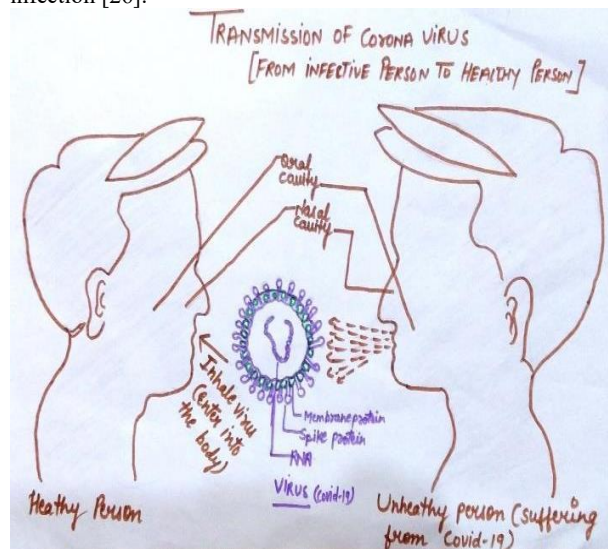 infection [20].
TRANSMISSION OF CORONA VIRUS
[FROM INFECTIVE PERSON TO HEALTHY PERSON]
Oral
cavity
Nasal
cavity
Inhale virus
(enter into
the body)
Membrane protein
Spike protein
RNA
VIRUS (covid-19)
Heathy Person
Unheathy person (suffering
from Covid-19)